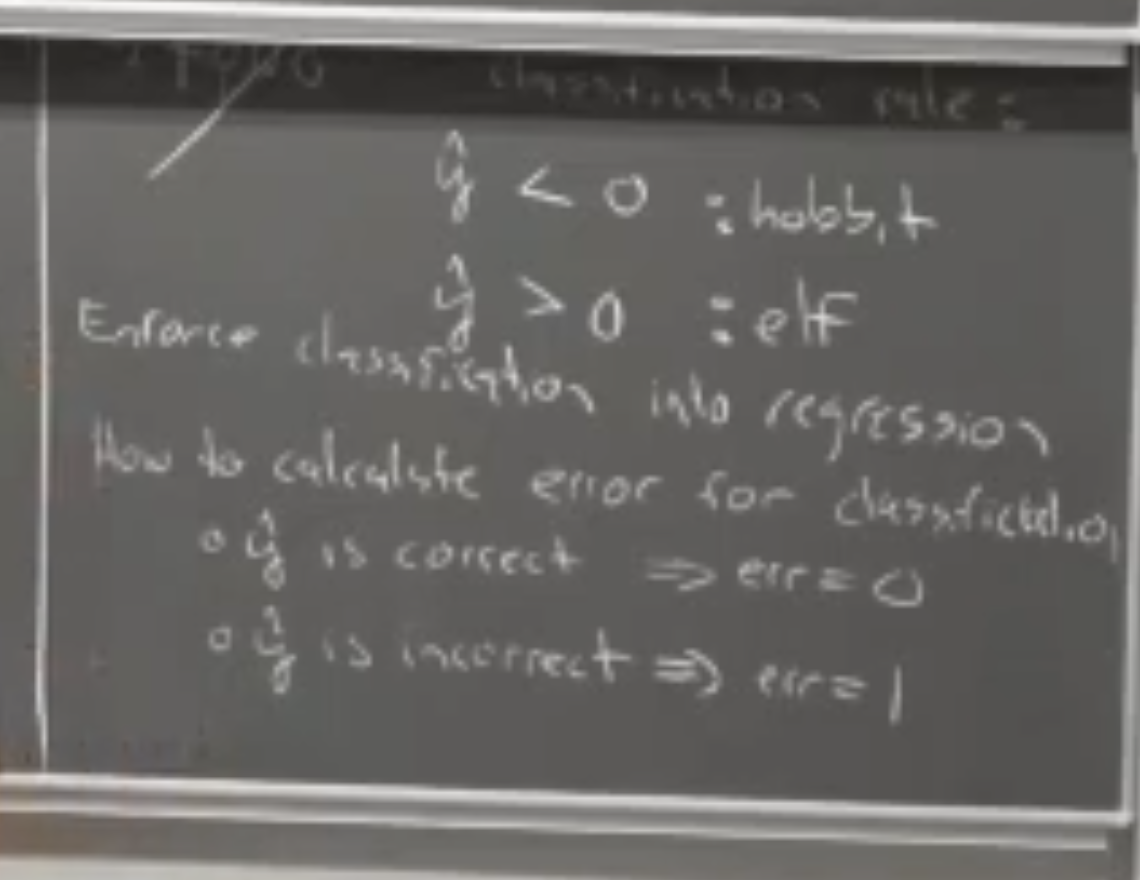 classification rule:
ŷ < 0 : hobbit
ŷ > 0 : elf
Enforce classification into regression
How to calculate error for
o ŷ is correct ⇒ err = 0
o ŷ is incorrect ⇒ err = 1